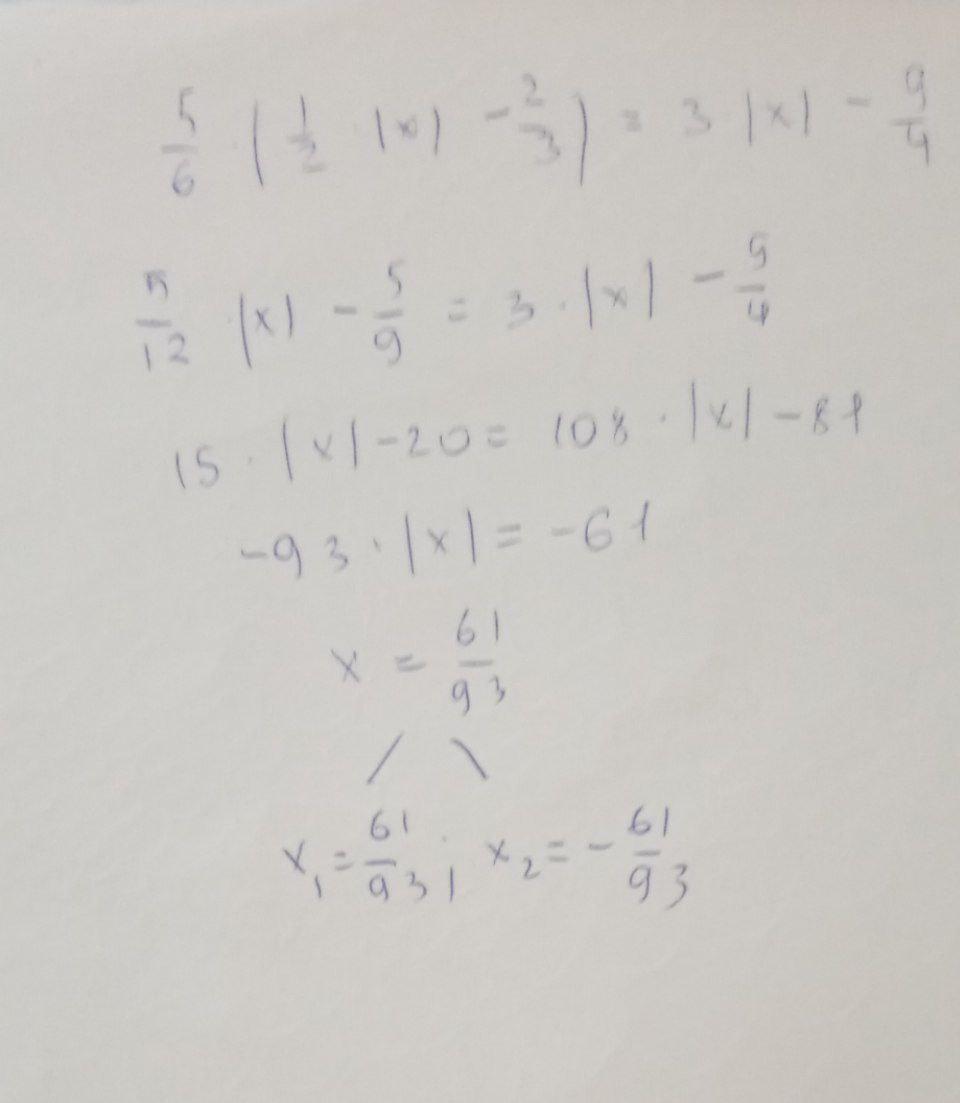 5/6 · (1/2 · |x| - 2/3) = 3 |x| - 9/4
5/12 · |x| - 5/9 = 3 · |x| - 9/4
15 · |x| - 20 = 108 · |x| - 81
-93 · |x| = -61
x = 61/93
x₁ = 61/93 ; x₂ = - 61/93